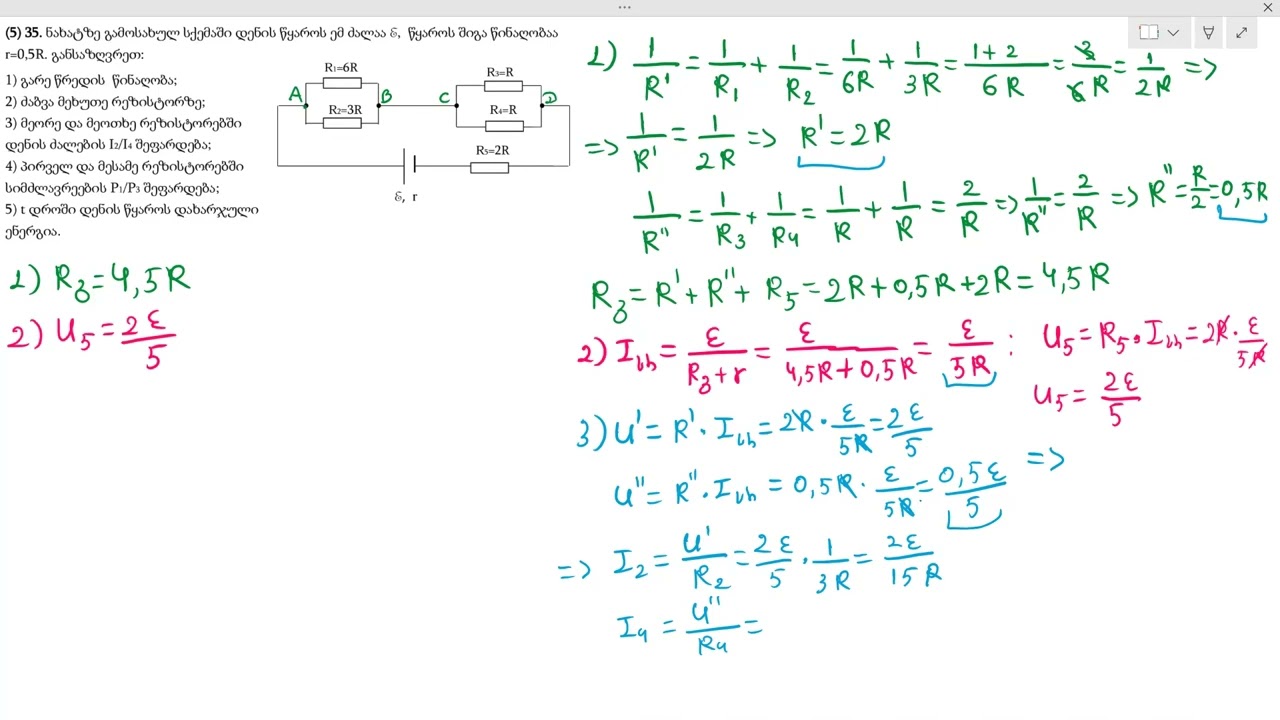 (5) 35. ნახატზე გამოსახულ სქემაში დენის წყაროს ემ ძალაა ℰ, წყაროს შიგა წინაღობაა
r=0,5R. განსაზღვრეთ:
1) გარე წრედის წინაღობა;
2) ძაბვა მეხუთე რეზისტორზე;
3) მეორე და მეოთხე რეზისტორებში
დენის ძალების I₂/I₄ შეფარდება;
4) პირველ და მესამე რეზისტორებში
სიმძლავრეების P₁/P₃ შეფარდება;
5) t დროში დენის წყაროს დახარჯული
ენერგია.
R₁=6R
R₂=3R
R₃=R
R₄=R
R₅=2R
A B C D
ℰ, r
1) R გ = 4,5R
2) U₅ = 2ε/5
1) 1/R' = 1/R₁ + 1/R₂ = 1/6R + 1/3R = 1+2/6R = 3/6R = 1/2R =>
=> 1/R' = 1/2R => R' = 2R
1/R'' = 1/R₃ + 1/R₄ = 1/R + 1/R = 2/R => 1/R'' = 2/R => R'' = R/2 = 0,5R
R გ = R' + R'' + R₅ = 2R + 0,5R + 2R = 4,5R
2) I სრ = ε/R გ + r = ε/4,5R + 0,5R = ε/5R : U₅ = R₅ · I სრ = 2R · ε/5R
U₅ = 2ε/5
3) U' = R' · I სრ = 2R · ε/5R = 2ε/5
U'' = R'' · I სრ = 0,5R · ε/5R = 0,5ε/5 =>
=> I₂ = U'/R₂ = 2ε/5 · 1/3R = 2ε/15R
I₄ = U''/R₄ =